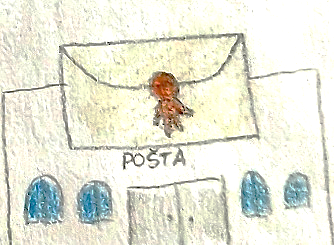 POŠTA